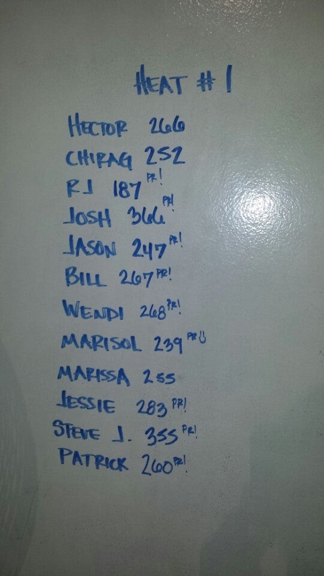 HEAT # 1
HECTOR 266
CHIRAG 252
RJ 187 PR!
JOSH 366 PR!
JASON 247 PR!
BILL 267 PR!
WENDI 268 PR!
MARISOL 239 PR
MARISSA 255
JESSIE 283 PR!
STEVE J. 355 PR!
PATRICK 260 PR!